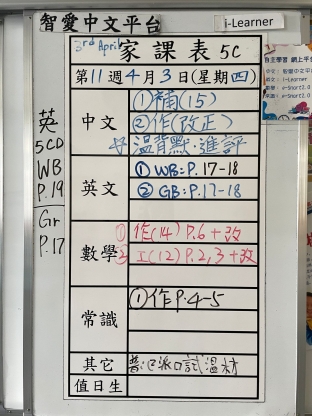 智愛中文平台
i-Learner
3rd April
家課表 5C
第11週4月3日(星期四)
自主學習 網上平台
中文
①補(15)
②作(改正)
溫背默、進評
英
5CD
WB
P.19
Gr
P.17
英文
① WB:P.17-18
② GB:P.17-18
數學
① 作(14) P.6+改
② 工(12) P.2,3+改
常識
①作P.4-5
其它
普:已派口試溫材
值日生